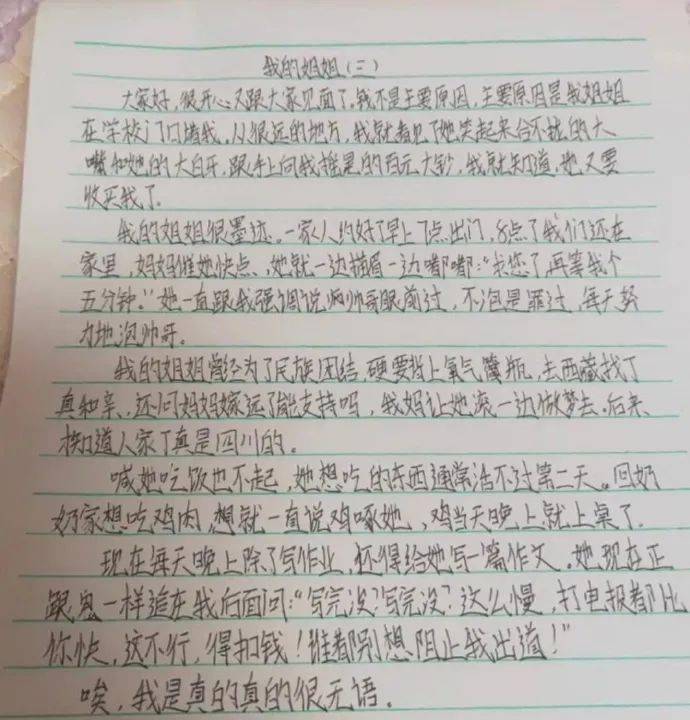 我的姐姐(三)
大家好,很开心又跟大家见面了,我不是主要原因,主要原因是我姐姐
在学校门口堵我。从很远的地方,我就看见了她笑起来合不拢的大
嘴和她的大白牙,跟手上向我摇晃的百元大钞,我就知道,她又要
收买我了。
我的姐姐很墨迹。一家人约好了早上7点出门,8点了我们还在
家里,妈妈催她快点、她就一边描眉一边嘟嘟:“求您了,再等我个
五分钟。”她一直跟我强调说帅哥眼前过,不泡是罪过,每天努
力地泡帅哥。
我的姐姐曾经为了民族团结,硬要背上氧气瓶,去西藏找丁
真和亲、还问妈妈嫁远了能支持吗,我妈让她滚一边做梦去。后来
才知道人家丁真是四川的。
喊她吃饭也不起,她想吃的东西通常活不过第二天。回奶
奶家想吃鸡肉,想就一直说鸡啄她,鸡当天晚上就上桌了。
现在每天晚上除了写作业,还得给她写一篇作文。她现在正
跟鬼一样追在我后面问:“写完没?写完没?这么慢,打电报都比
你快,这不行,得扣钱!谁都别想阻止我出道!”
唉,我是真的真的很无语。